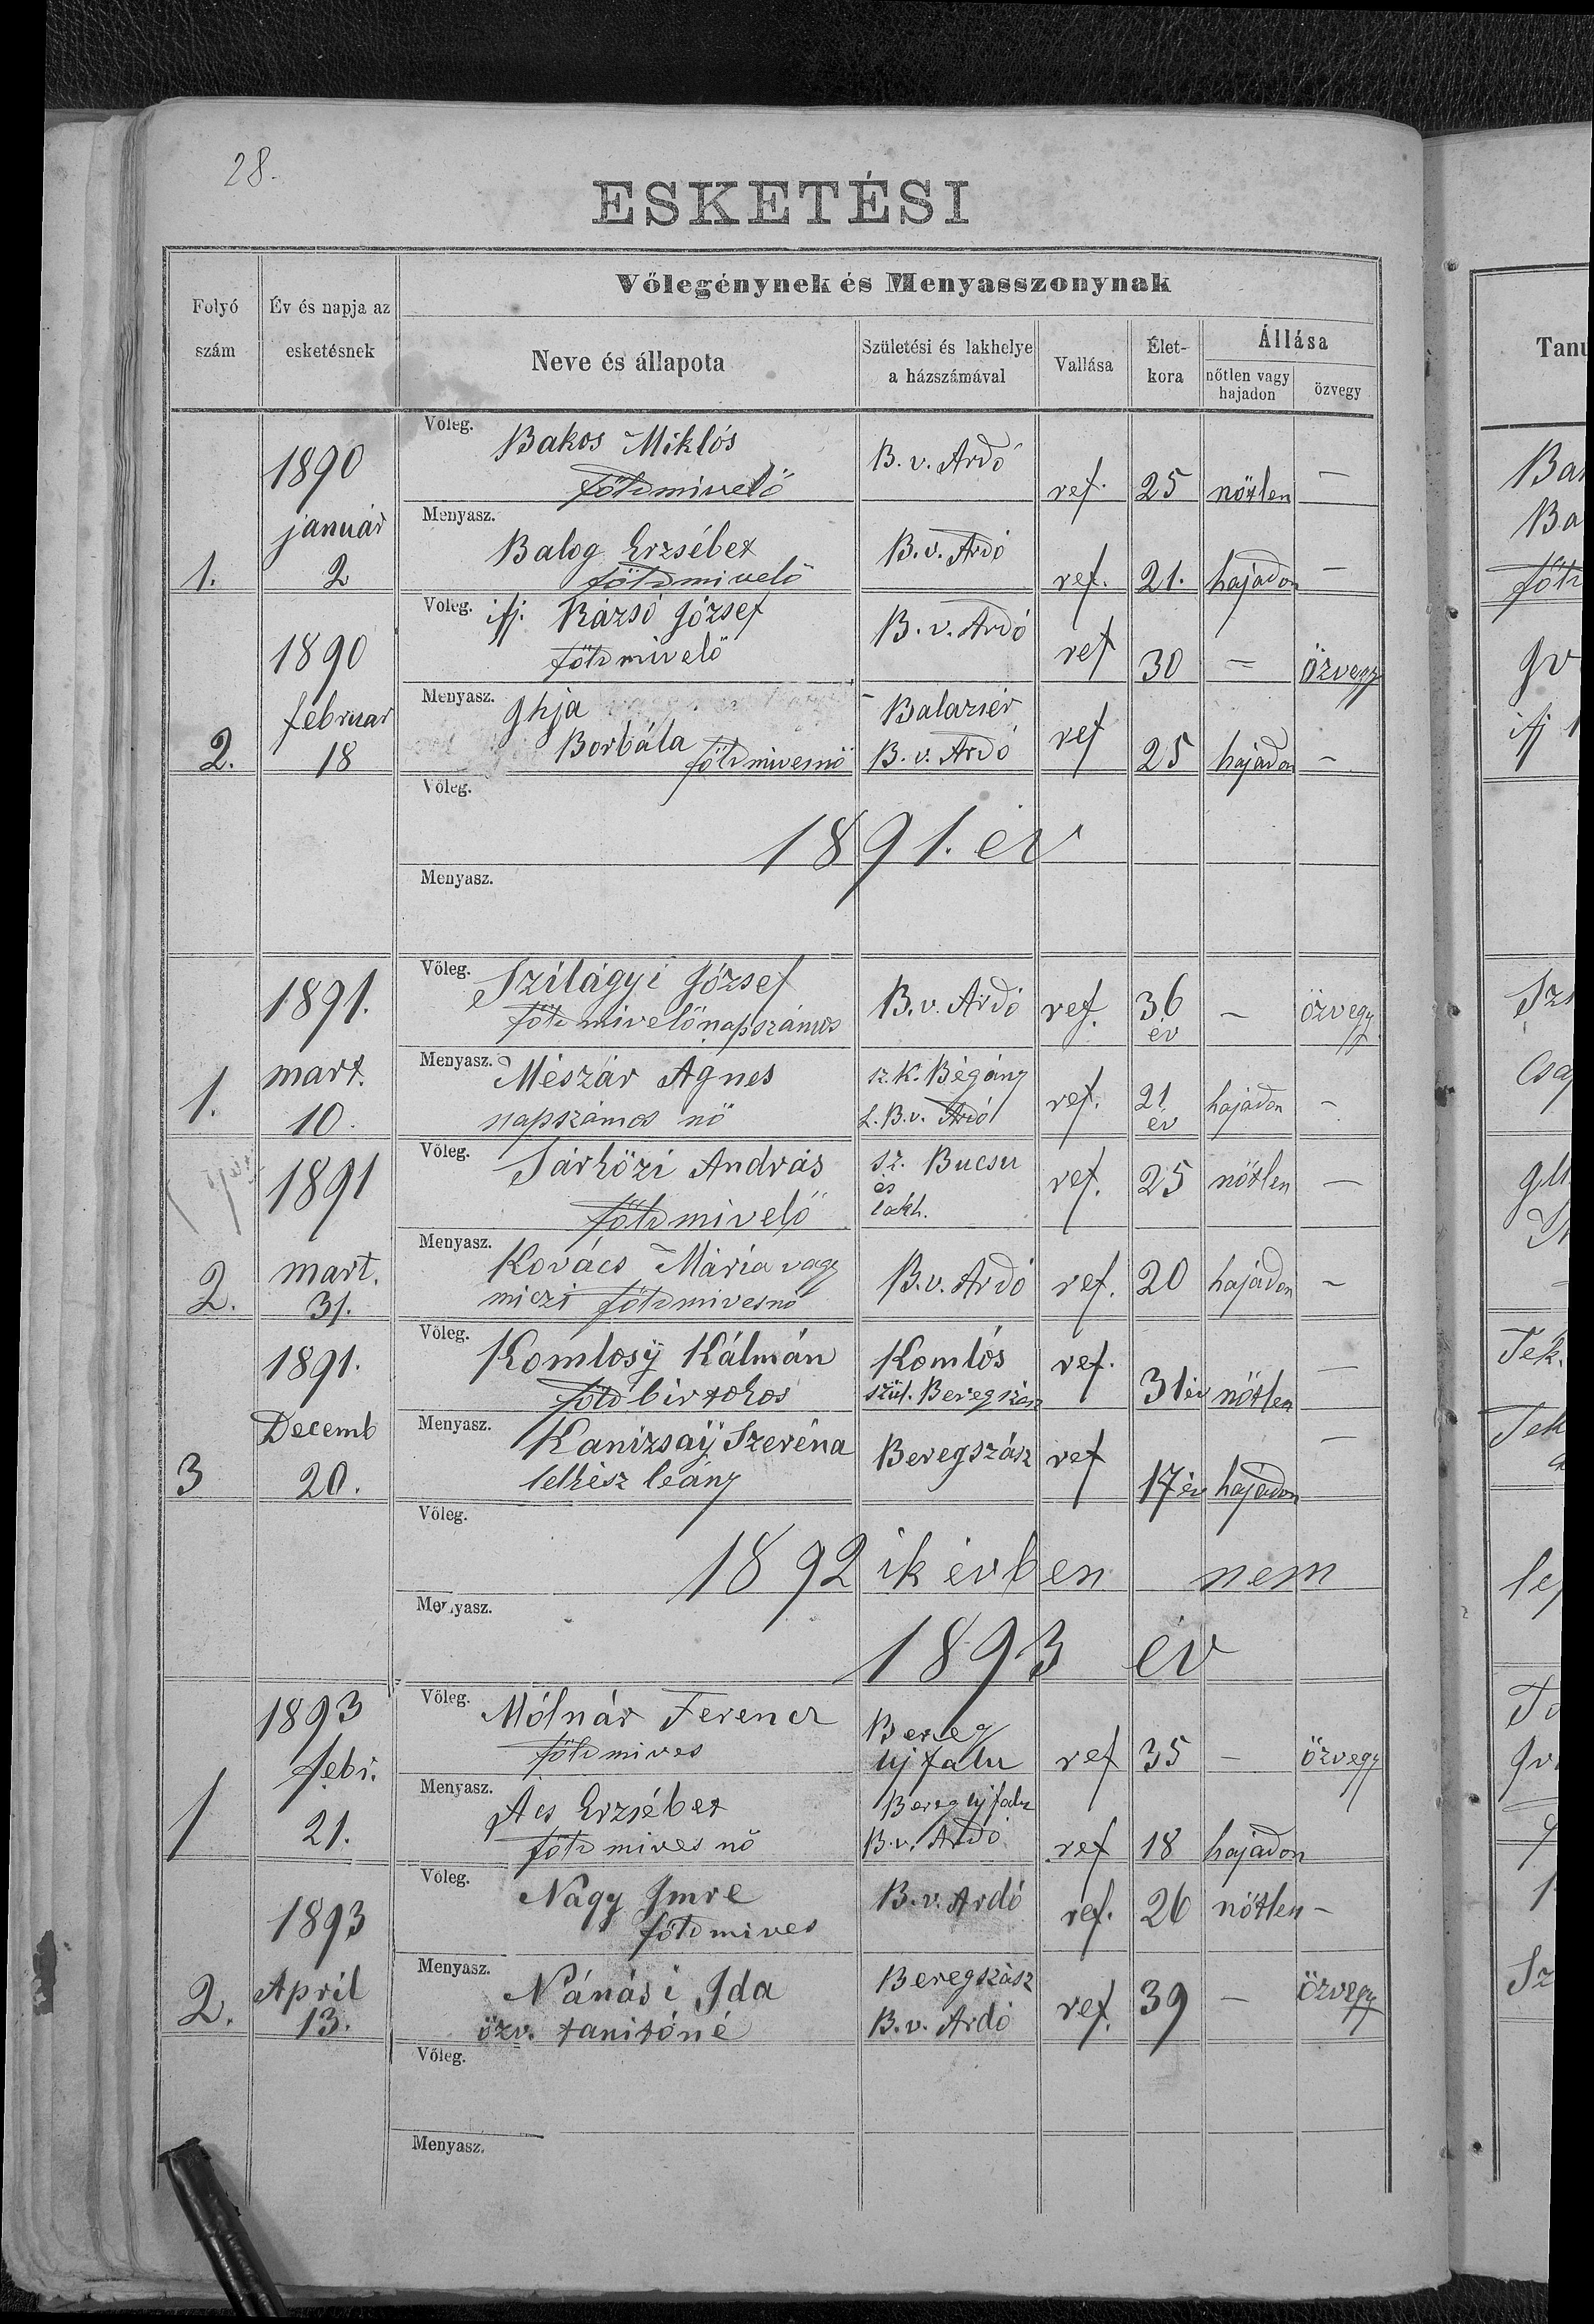 28.
ESKETÉSI
Folyó szám
Év és napja az esketésnek
Vőlegénynek és Menyasszonynak
Neve és állapota
Születési és lakhelye a házszámával
Vallása
Életkora
Állása
nőtlen vagy hajadon
özvegy
Tanu
1. 1890 január 2
Vőleg. Bakos Miklós B. v. Ardó
földmivelő ref. 25 nőtlen —
Menyasz. Balog Erzsébet B. v. Ardó
földmivelő ref. 21. hajadon —
2. 1890 februar 18
Vőleg. ifj. Rázsó József B. v. Ardó
földmivelő ref 30 — özvegy
Menyasz. Ghja Balazsér
Borbála földmivesnő B. v. Ardó ref 25 hajadon —
Vőleg.
1891. év
Menyasz.
1. 1891. mart. 10.
Vőleg. Szilágyi József B. v. Ardó ref. 36 év — özvegy
földmivelő napszámos
Menyasz. Mészár Agnes sz. K. Bégány
napszámos nő L. B. v. Ardó ref. 21 év hajadon —
2. 1891 mart. 31.
Vőleg. Sárközi András sz. Bucsu és lakh. ref. 25 nőtlen —
földmivelő
Menyasz. Kovács Mária vagy B. v. Ardó ref. 20 hajadon —
miczi földmivesnő
3 1891. Decemb 20.
Vőleg. Komlosÿ Kálmán Komlós ref.
földbirtokos szül. Beregszász 31 év nőtlen —
Menyasz. Kanizsaÿ Szeréna Beregszász ref
lelkész leány 17 év hajadon —
Vőleg.
1892 ik évben nem
Menyasz.
1893 év
1 1893 febr. 21.
Vőleg. Mólnár Ferencz Bereg
földmives ujfalu ref 35 — özvegy
Menyasz. Ács Erzsébet Bereg ujfalu
földmives nő B. v. Ardó ref 18 hajadon
2. 1893 April 13.
Vőleg. Nagy Imre B. v. Ardó ref. 26 nőtlen —
földmives
Menyasz. Nánási Ida Beregszász
özv. tanitóné B. v. Ardó ref. 39 — özvegy
Vőleg.
Menyasz.